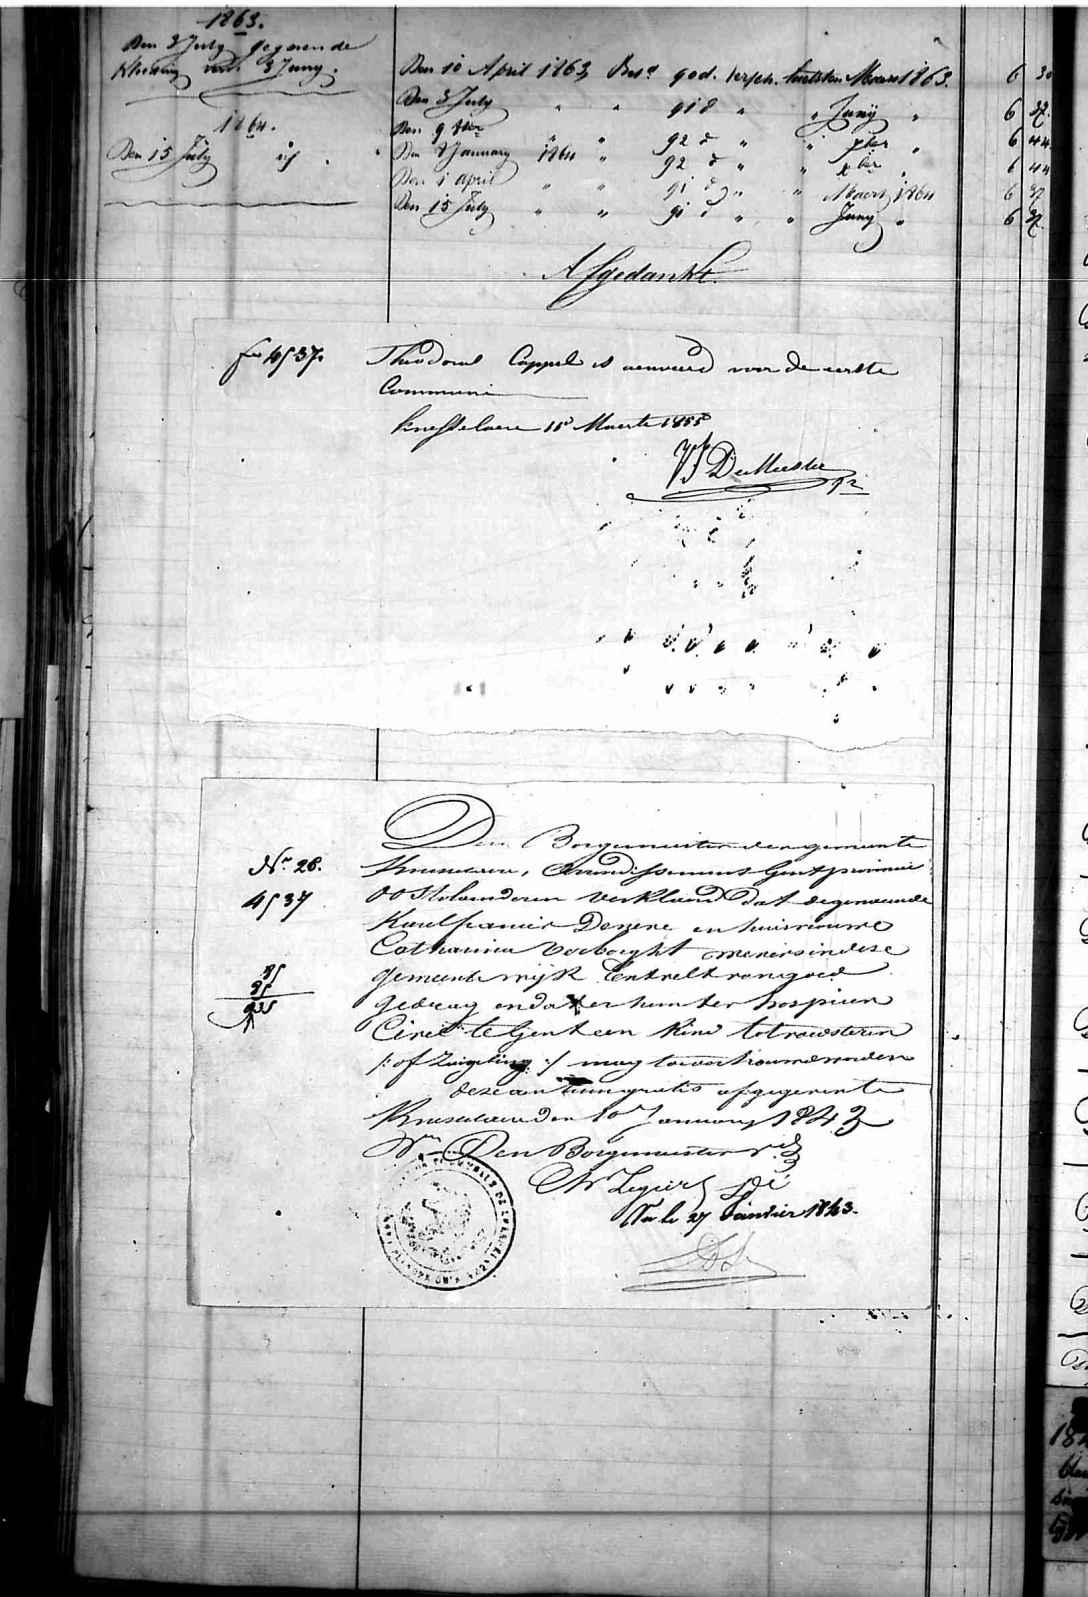 1863.
Den 3 July gegeven de
kleeding van 3 Juny.
1864.
Den 15 July id
Den 10 April 1863 Bet. 90 d. versch. Maart 1863. 6 30
Den 3 July " " 91 d " " Juny " 6 37.
Den 9 8ber " " 92 d " " 7ber " 6 44
Den 8 January 1864 " 92 d " " xber " 6 44
Den 1 April " " 91 d " " Maert 1864 6 37
Den 15 July " " 91 d " " Juny " 6 37.
Afgedankt.
4537. Theodorus Cappel is aenveerd voor de eerste
Communi
Knesselaere 15 Maerte 1855
De Meester
Den Borgemeester der gemeente
Nr. 28. Knesselaere, Arrondissement Gent provincie
4537 Oostvlaenderen verklaerd dat de genaemde
Karel francies Dezere en huisvrouwe
Catharina Verborght inwoners in deze
gemeente wijk Kentrelt van goed
gedrag en dat er hun ter hospicen
Civiel te Gent een kind tot
/: of Zuigeling :/ mag toevertrouwd worden
deze aen hun gratis afgegeven te
Knesselaere den 10 January 1843
Den Borgemeester
Vu le 27 Janvier 1843.